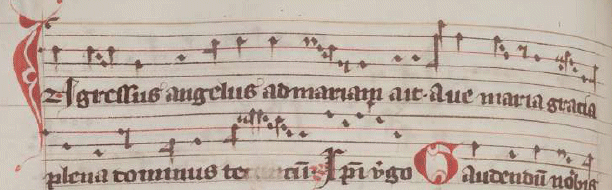 Ingressus angelus ad mariam ait. Aue maria gracia
plena dominus tecum Ip̄i v̓go Gaudendū nobis